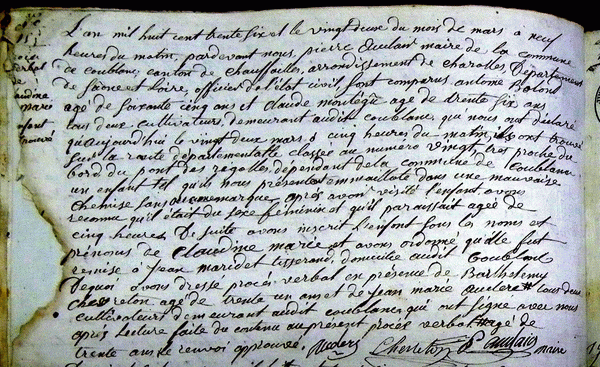 procès
verbal
de
claudine
marie
enfant
trouvé
L'an mil huit cent trente six et le vingt deux du mois de mars à neuf
heures du matin, pardevant nous, pierre aulair maire de la commune
de coublanc, canton de chauffailles, arrondissement de charolles Département
de Saône et Loire, officier de l'état civil, sont comparus antoine
agé de soixante cinq ans et claude montegie agé de trente six ans
tous deux cultivateurs, demeurant audit coublanc, qui nous ont déclaré
qu'aujourd'hui le vingt deux mars à cinq heures du matin ils ont trouvé
sur la route départementalle classée au numéro vingt tres proche du
bord du pont des régolles dépendant de la commune de Coublanc
un enfant tel qu'ils nous présente emmailloté dans une mauvaise
chemise sans aucune marque, après avoir visité l'enfant, avons
reconnu qu'il était du sexe féminin et qu'il paraissait agée de
cinq heures De suite avons inscrit l'enfant sous les noms et
prénoms de Claudine marie et avons ordonné qu'elle fut
remise à Jean tisserand, domicilié audit Coublanc
De quoi avons dressé procès verbal en présence de Barthelemy
agé de trente un ans et de jean marie auclerc # tous deux
cultivateurs demeurant audit coublanc qui ont signé avec nous
après lecture faite du contenu au présent procès verbal # agé de
trente ans le renvoi approuvé. Auclerc maire